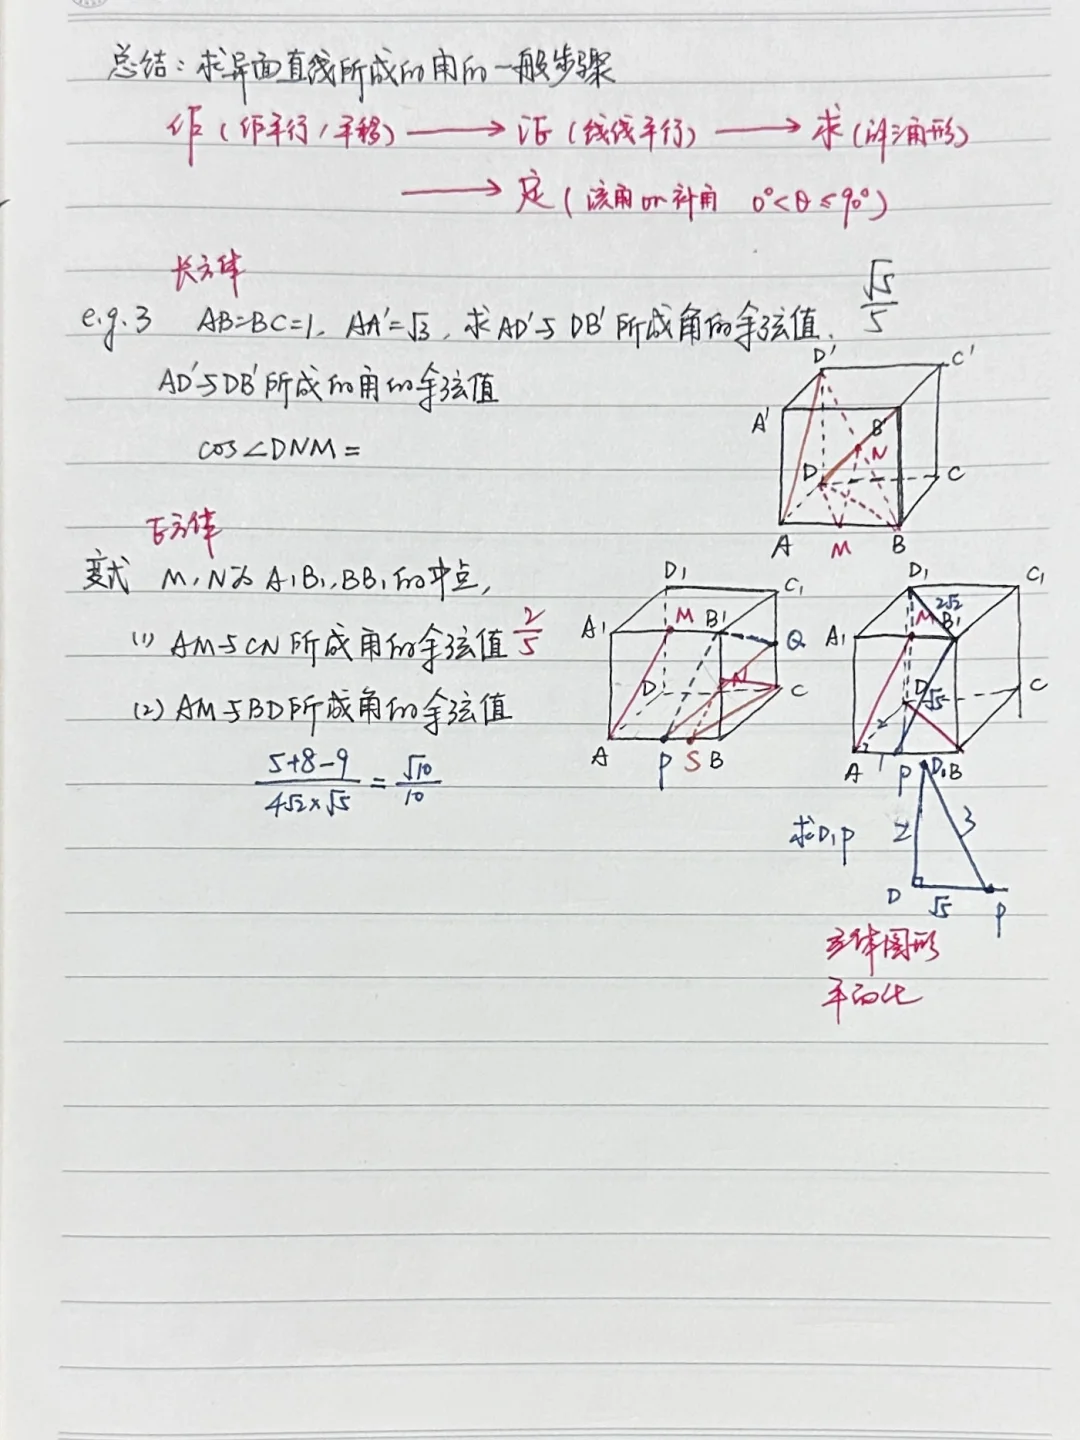 总结：求异面直线所成的角的一般步骤
作（作平行/平移）⟶ 证（线线平行）⟶ 求（解三角形）
⟶ 定（该角or补角 0°<θ≤90°）
长方体
e.g.3 AB=BC=1, AA'=√3, 求AD'与DB'所成角的余弦值. √5/5
AD'与DB'所成的角的余弦值
cos∠DNM=
D' C' A' B' N D C A M B
正方体
变式 M,N为A₁B₁,BB₁的中点,
(1) AM与CN所成角的余弦值 2/5
(2) AM与BD所成角的余弦值
(5+8-9)/(4√2×√5) = √10/10
D₁ C₁ A₁ M B₁ Q D N C A P S B
D₁ C₁ 2√2 A₁ M B₁ D √5 C 2 A 1 P B
D₁
求D₁P 2 3
D √5 P
立体图形
平面化